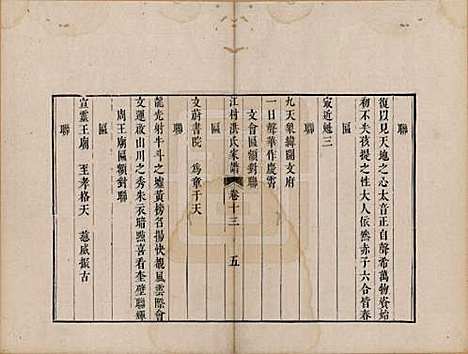 聯
復以見天地之心太音正自聲希萬物資始
初不失孩提之性大人依然赤子六合皆春
區
家近魁三
聯
九天象緯開文府
一日聲華作慶霄
文會區額對聯
江村洪氏家譜 卷十三 五
文蔚書院 為章于天
聯
龍光射牛斗之墟黃榜名揚快覩風雲際會
文運啟山川之秀朱衣暗點喜看奎壁聯輝
廟王廟區額對聯
區
宣靈王廟 至孝格天 慈威振古
聯